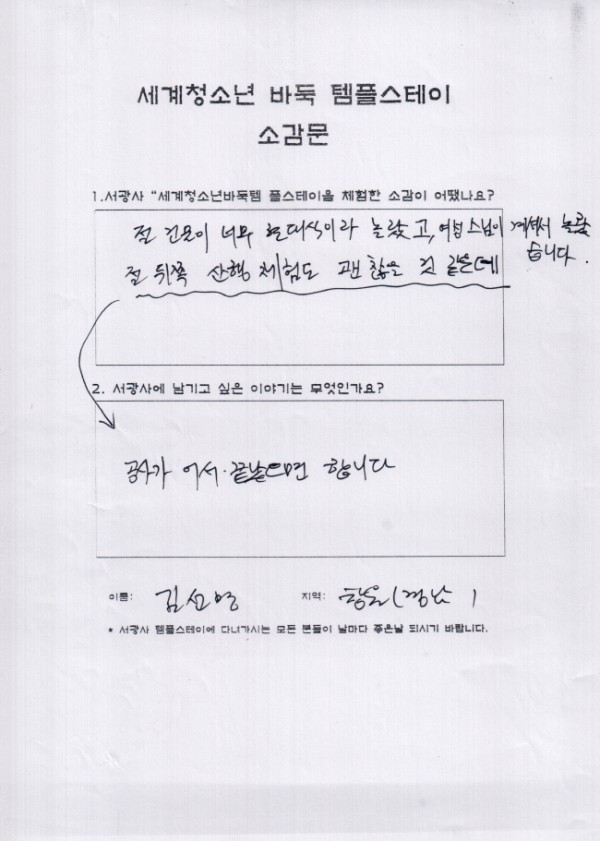 세계청소년 바둑 템플스테이
소감문
1.서광사 “세계청소년바둑템 플스테이을 체험한 소감이 어땠나요?
절 건물이 너무 현대식이라 놀랐고, 여법 스님이 계셔서 놀랐
습니다.
절 뒤쪽 산행 체험도 괜찮을 것 같은데
2. 서광사에 남기고 싶은 이야기는 무엇인가요?
공사가 어서 끝났으면 합니다
이름: 김선영 지역: 함안(경남)
* 서광사 템플스테이에 다녀가시는 모든 분들이 날마다 좋은날 되시기 바랍니다.